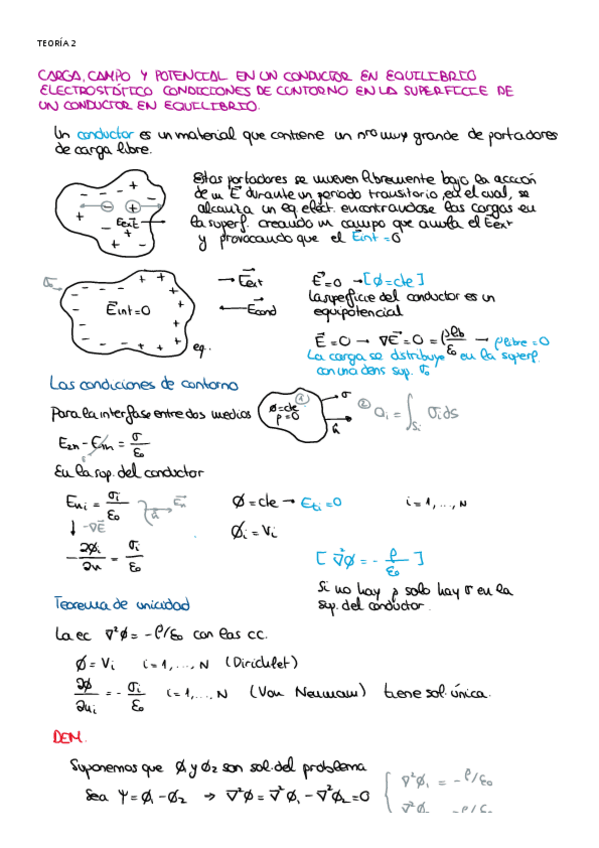 TEORÍA 2
CARGA, CAMPO Y POTENCIAL EN UN CONDUCTOR EN EQUILIBRIO
ELECTROSTÁTICO CONDICIONES DE CONTORNO EN LA SUPERFICIE DE
UN CONDUCTOR EN EQUILIBRIO.
Un conductor es un material que contiene un nro muy grande de portadores
de carga libre.
Estas portadores se mueven libremente bajo la acción
de un E⃗ durante un periodo transitorio, en el cual, se
alcanza un eq. eléct. encontrandose las cargas en
la superf. creando un campo que anula el E⃗ext
y provocando que el E⃗int = 0
E⃗ext
E⃗int = 0
eq.
→ E⃗ext
← E⃗cond
E⃗ = 0 → [ϕ = cte]
La superficie del conductor es un
equipotencial
E⃗ = 0 → ∇E⃗ = 0 = ρlib/ε₀ → ρlibre = 0
La carga se distribuye en la superf.
con una dens sup. σ₀
Las condiciones de contorno
Para la interfase entre dos medios
ϕ = cte
ρ = 0
①
σ
n̂
② Qi = ∫Si σi ds
E2n - E1n = σ/ε₀
En la sup. del conductor
Eni = σi/ε₀
n̂ E⃗n
ϕ = cte → Eti = 0 i = 1, ..., N
↓ -∇E⃗
ϕi = Vi
- ∂ϕi/∂n = σi/ε₀
[ ∇²ϕ = - ρ/ε₀ ]
Si no hay ρ solo hay σ en la
sup. del conductor.
Teorema de unicidad
La ec ∇²ϕ = -ρ/ε₀ con las cc.
ϕ = Vi i = 1, ..., N (Dirichlet)
∂ϕ/∂ni = - σi/ε₀ i = 1, ... N (Von Neumann) tiene sol. única.
DEM.
Suponemos que ϕ₁ y ϕ₂ son sol. del problema
Sea Ψ = ϕ₁ - ϕ₂ → ∇²ϕ = ∇²ϕ₁ - ∇²ϕ₂ = 0
∇²ϕ₁ = -ρ/ε₀
∇²ϕ₂ = -ρ/ε₀